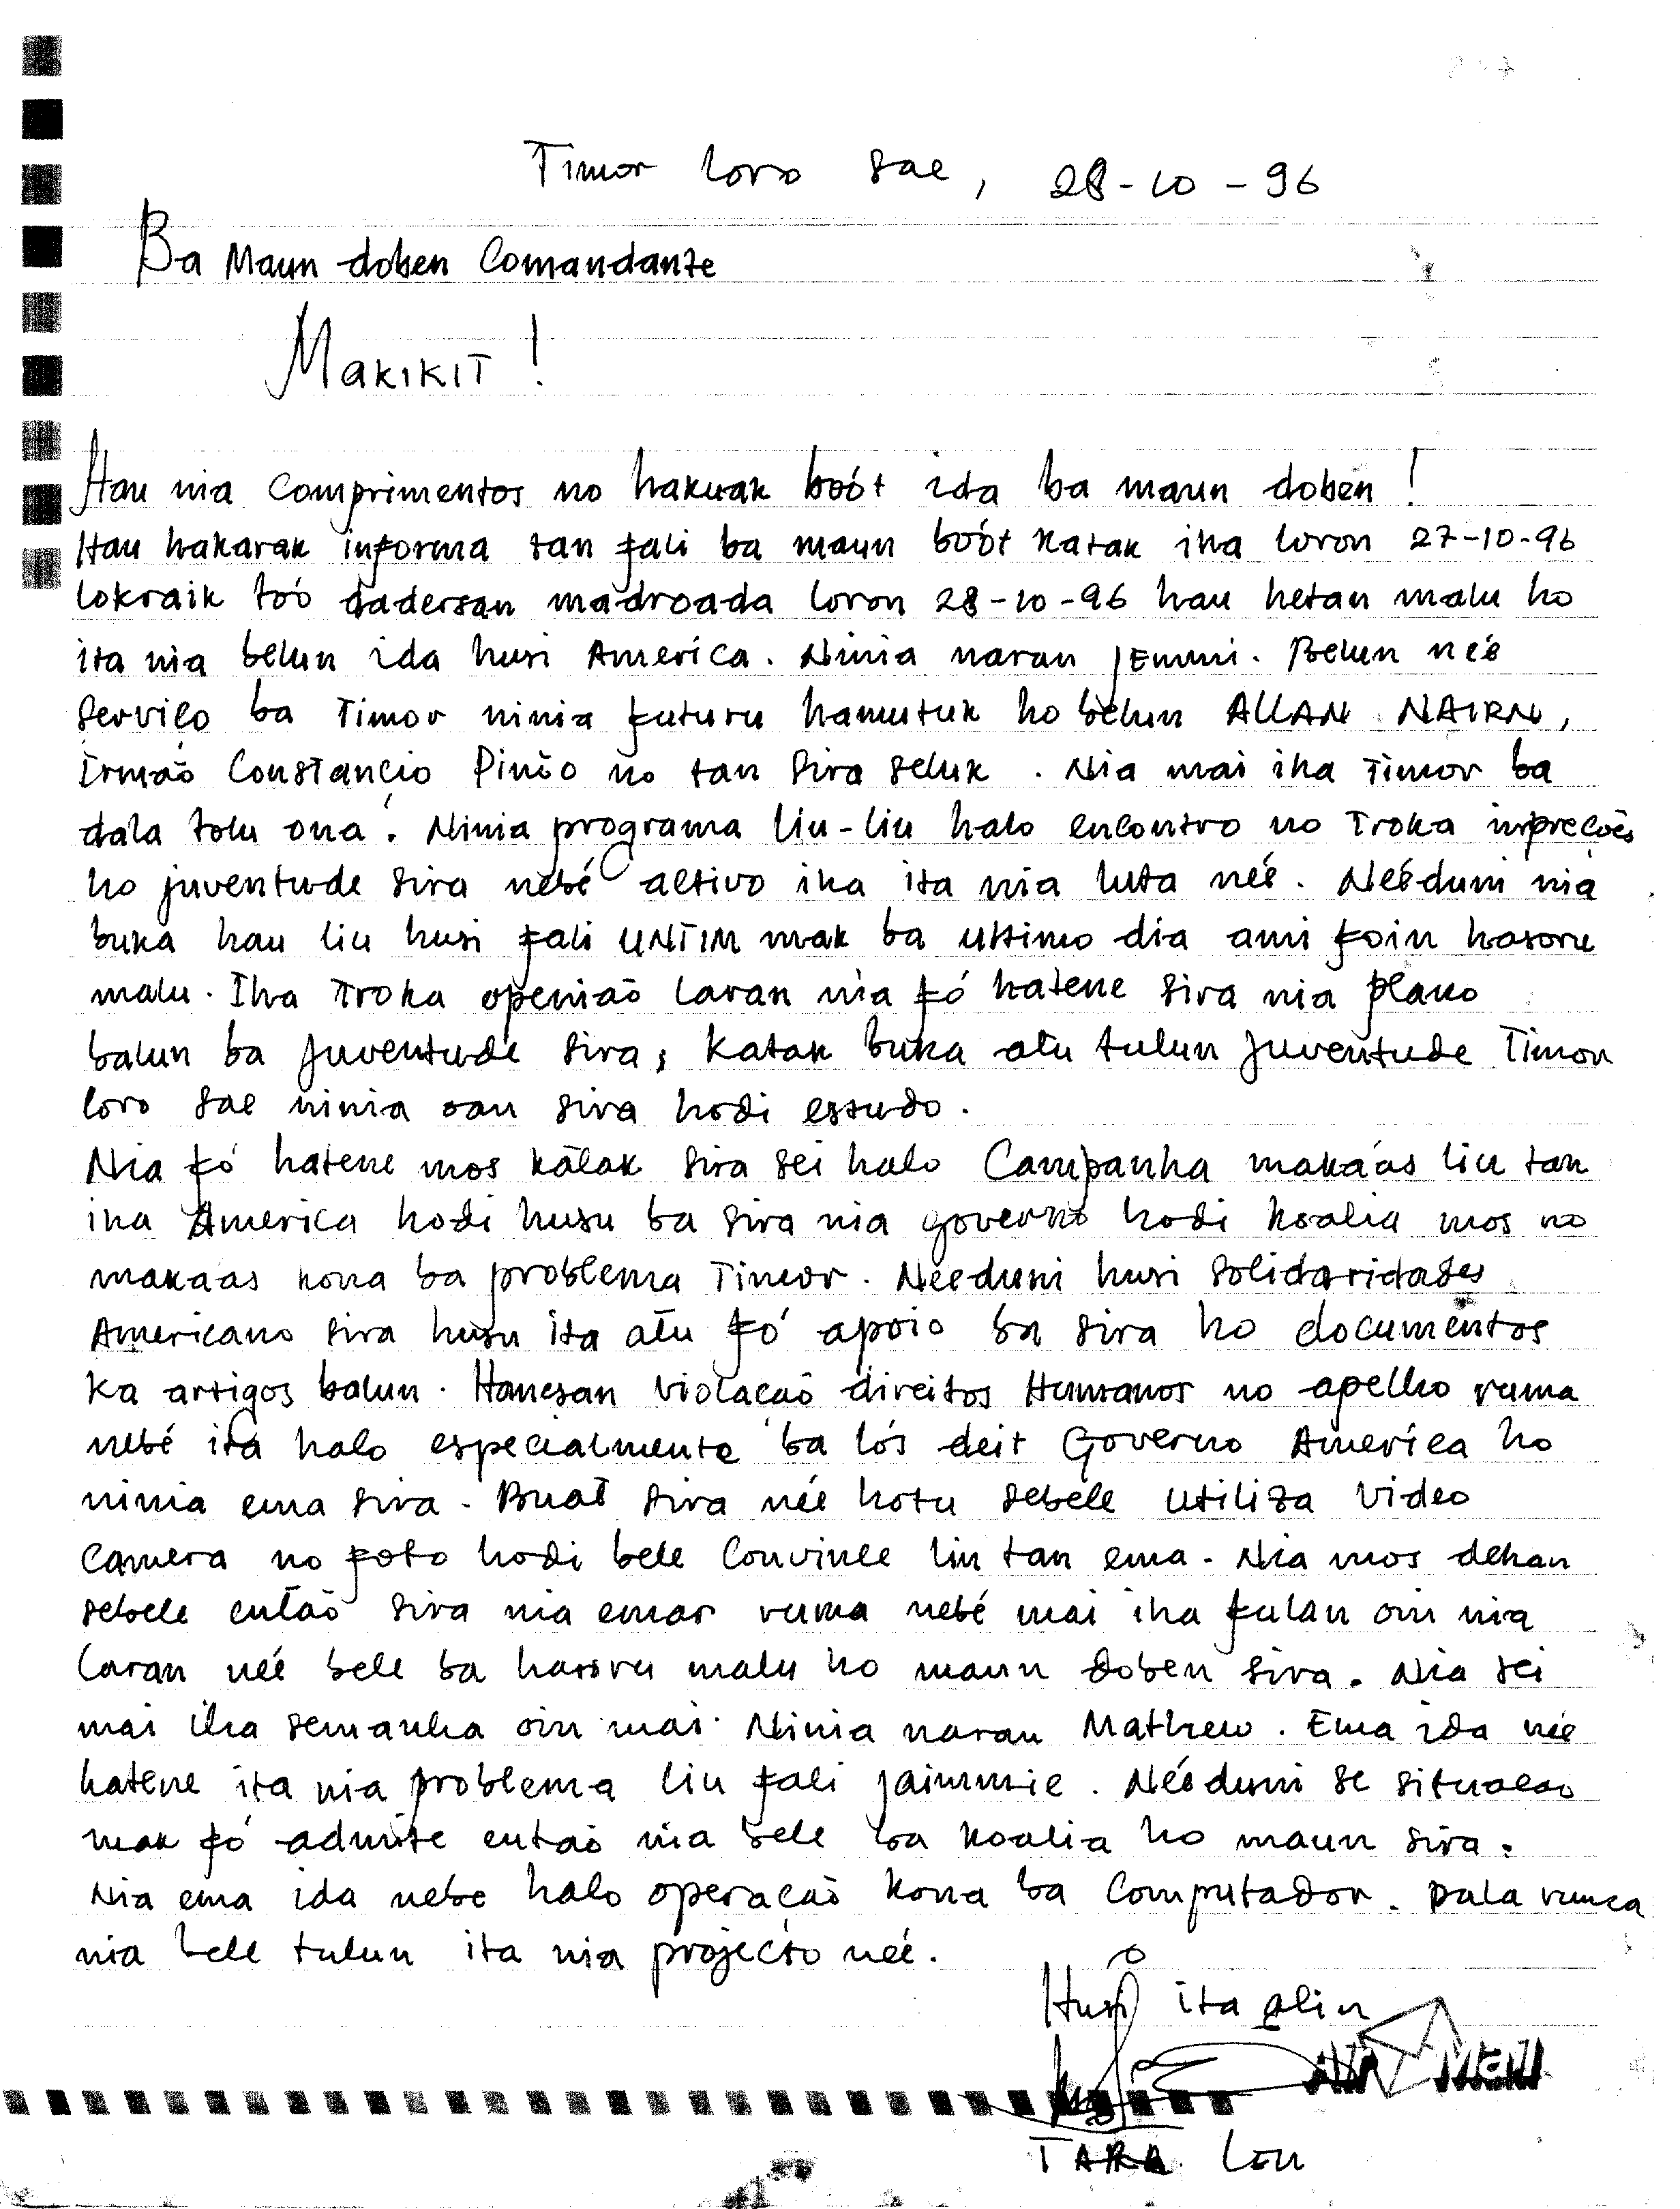 Timor loro sae, 28-10-96
Ba Maun doben Comandante
Makikit !
Hau nia Comprimentos no hakuak boót ida ba maun doben !
Hau hakarak informa tan fali ba maun boót katak iha loron 27-10-96
lokraik tóo dadersan madroada loron 28-10-96 hau hetan malu ho
ita nia belun ida husi America. Ninia naran JEmmi. Belun neé
serviço ba Timor ninia futuru hamutuk ho belun ALLAN NAIRN,
Irmão Constancio Pinto no tan sira seluk. Nia mai iha Timor ba
dala tolu ona. Ninia programa liu-liu halo encontro no Troka inpreções
ho juventude sira nebé activo iha ita nia luta neé. Neéduni nia
buka hau liu husi fali UNTIM mak ba ultimo dia ami foin hasoru
malu. Iha Troka openiaõ laran nia fó hatene sira nia plano
balun ba juventude sira, katak buka atu tulun juventude Timor
loro sae ninia oan sira hodi estudo.
Nia fó hatene mos katak sira sei halo Campanha makaás liu tan
iha America hodi husu ba sira nia governo hodi koalia mos no
makaas kona ba problema Timor. Needuni husi solidaridades
Americano sira husu ita atu fó apoio ba sira ho documentos
ka artigos balun. Hanesan violaçaõ direitos Humanos no apelho ruma
nebé ita halo especialmente ba lós deit Governo America ho
ninia ema sira. Buat sira neé hotu sebele utiliza video
camera no foto hodi bele convince liu tan ema. Nia mos dehan
sebele entaõ sira nia emar ruma nebé mai iha fulan oin nia
laran neé bele ba hasoru malu ho maun doben sira. Nia sei
mai iha semanha oin mai. Ninia naran Mathew. Ema ida neé
hatene ita nia problema liu fali jaimmie. Neéduni se situacao
mak fó admite entaõ nia bele ba koalia ho maun sira.
Nia ema ida nebe halo operaçaõ kona ba Computador. Dala ruma
nia bele tulun ita nia projecto neé.
Husi ita alin
AIR Mail
TARA Leu